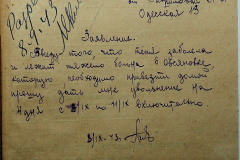 Одесская 13
Заявление.
В виду того, что тетя заболела
и лежит тяжело больна в Овсяновке,
которую необходимо привезти домой
прошу дать мне увольнение на
4 дня с 8/IX по 11/IX включительно.
8/IX-43г.